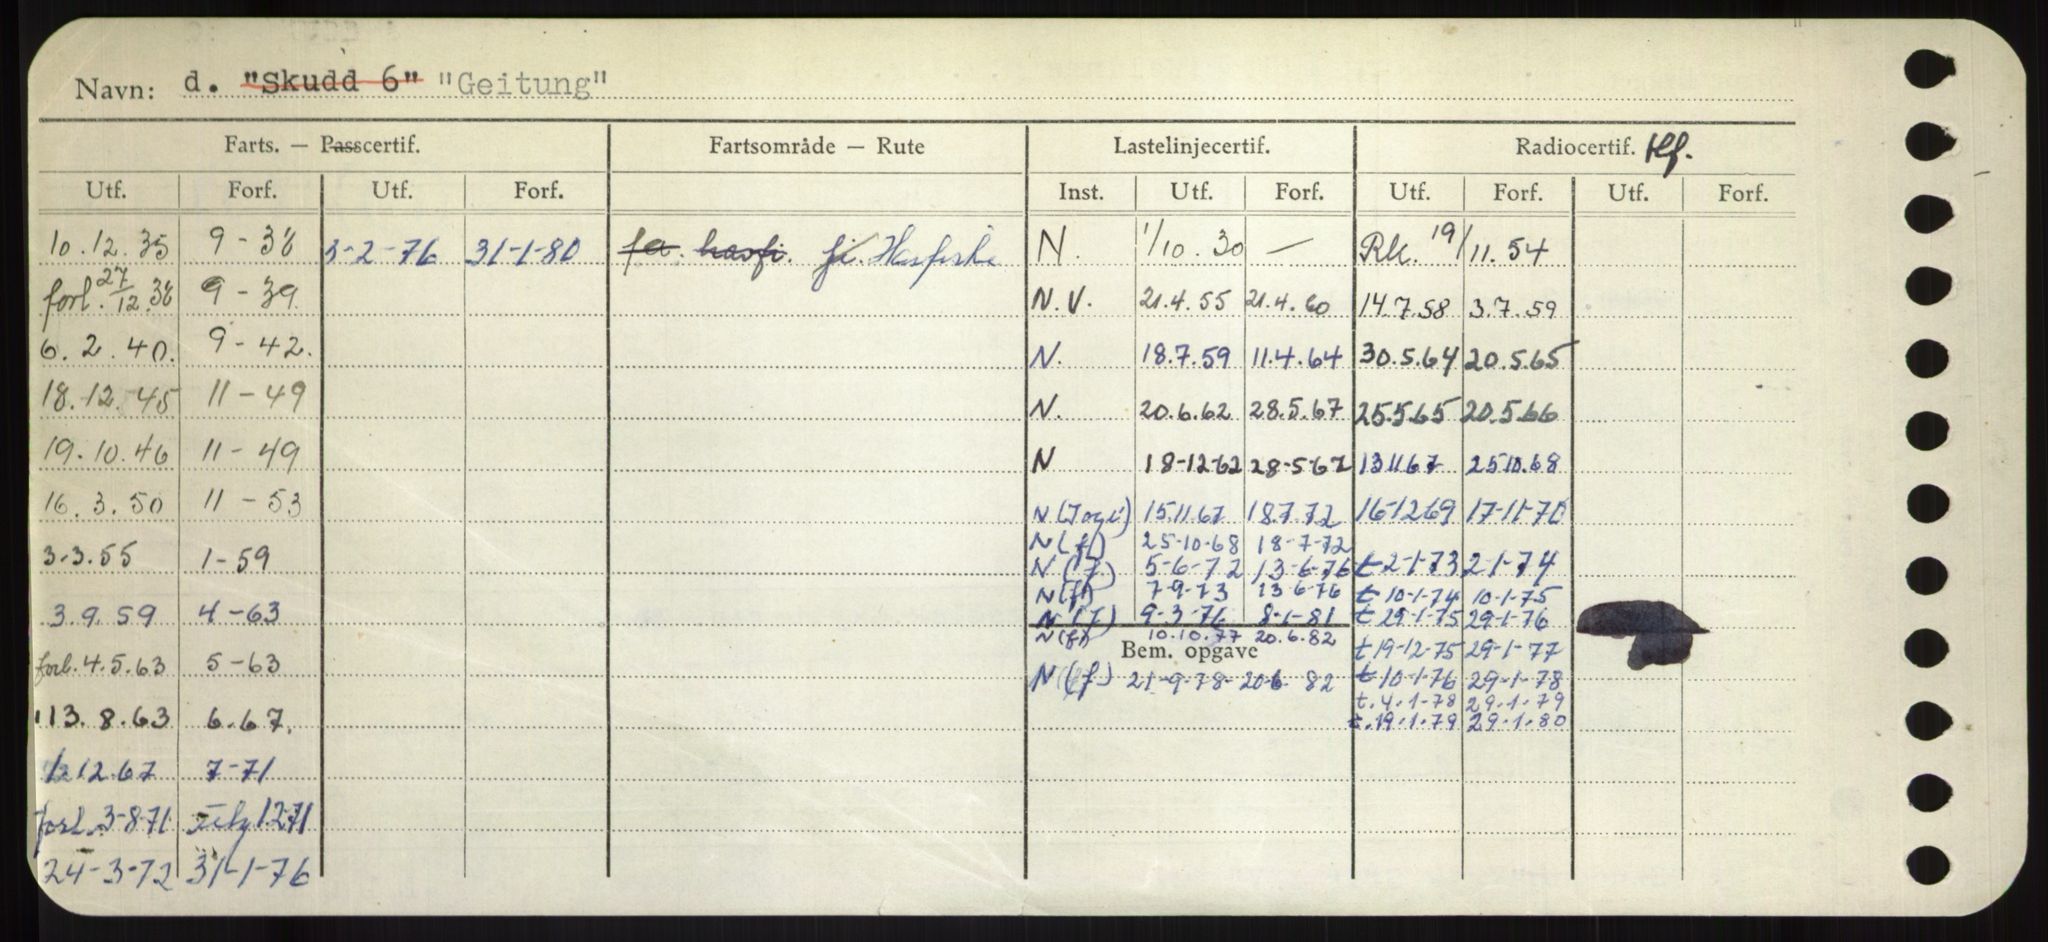 Navn: d. "Skudd 6" "Geitung"
Farts. — Passcertif. Fartsområde — Rute Lastelinjecertif. Radiocertif. tlf.
Utf. Forf. Utf. Forf. Inst. Utf. Forf. Utf. Forf. Utf. Forf.
10.12.35 9-38 3-2-76 31-1-80 fa. havfi. fi. Havfiske N. 1/10.30 — Rk. 19/11.54
forl. 27/12.38 9-39 N.V. 21.4.55 21.4.60 14.7.58 3.7.59
6.2.40. 9-42. N. 18.7.59 11.4.64 30.5.64 20.5.65
18.12.45 11-49 N. 20.6.62 28.5.67 25.5.65 20.5.66
19.10.46 11-49 N 18-12-62 28-5-67 13.11.67 25.10.68
16.3.50 11-53 N 15.11.67 18.7.72 16-12-69 17-11-70
N(f) 25-10-68 18-7-72
3.3.55 1-59 N(f) 5-6-72 13-6-76 t 2-1-73 2-1-74
N(f) 7-9-73 13-6-76 t 10-1-74 10-1-75
3.9.59 4-63 N(f) 9-3-76 8-1-81 t 29-1-75 29-1-76
N(f) 10.10.77 20.6.82
Bem. opgave t 19-12-75 29-1-77
forl. 4.5.63 5-63 N(f) 21-9-78 20.6.82 t 10-1-76 29-1-78
t. 4.1.78 29.1.79
13.8.63 6.67. t. 19.1.79 29.1.80
1.12.67 7-71
forl. 3-8-71 1271
24-3-72 31-1-76